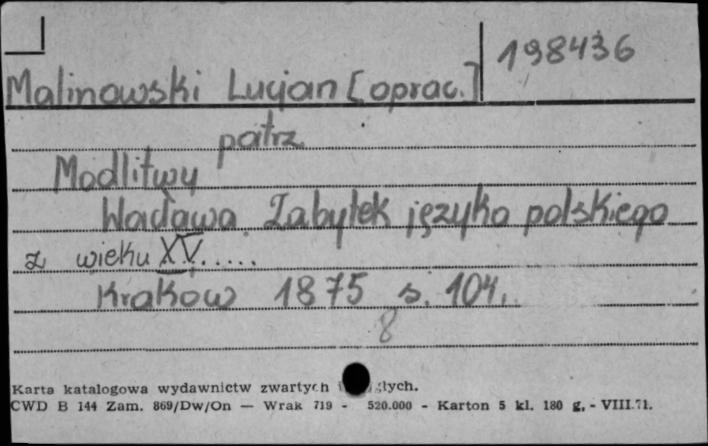 198436
Malinowski Lucjan [oprac.]
patrz
Modlitwy
Wacława. Zabytek języka polskiego
z wieku XV.....
Kraków 1875 s. 104.
8
Karta katalogowa wydawnictw zwartych
CWD B 144 Zam. 869/Dw/On — Wrak 719 - 520.000 - Karton 5 kl. 180 g. - VIII.71.